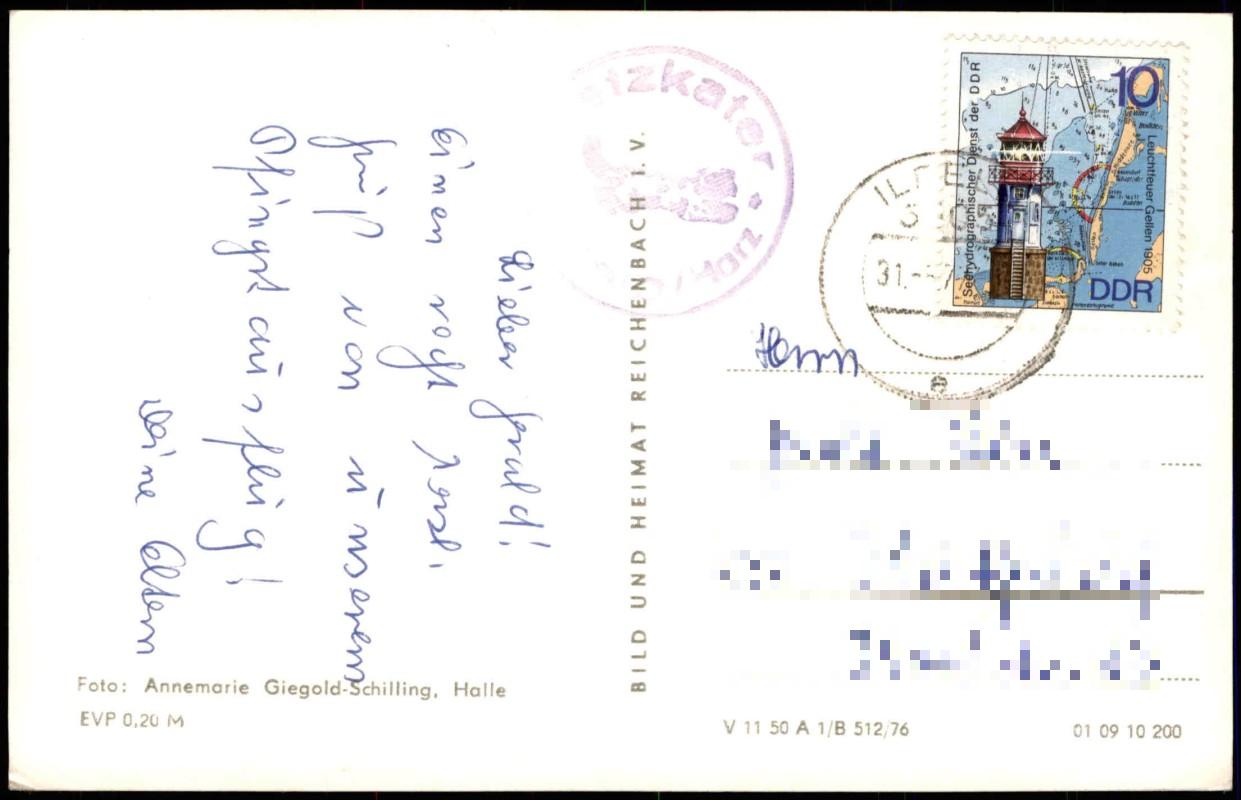 Lieber Gerald!
Einen recht herzl.
Gruß von unserem
Pfingstausflug!
Deine Eltern
Foto: Annemarie Giegold-Schilling, Halle
EVP 0,20 M
BILD UND HEIMAT REICHENBACH I. V.
tzkater
/Harz
31.
10
Seehydrographischer Dienst der DDR
Leuchtfeuer Gellen 1905
DDR
Herrn
V 11 50 A 1/B 512/76
01 09 10 200